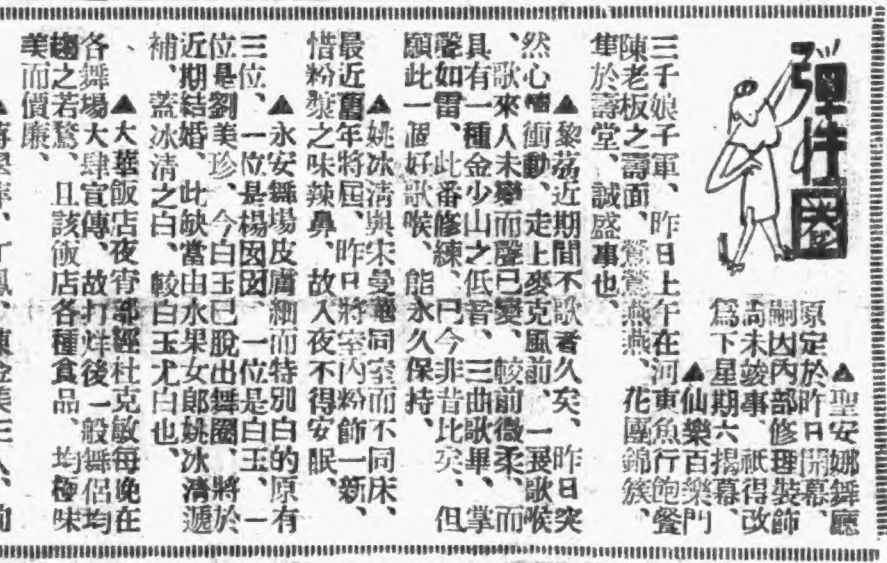 彈性圈
▲聖安娜舞廳
原定於昨日開幕、
嗣因內部修理裝飾
尚未竣事、祇得改
爲下星期六揭幕、
▲仙樂百樂門
三千娘子軍、昨日上午在河東魚行飽餐
陳老板之壽面、鶯鶯燕燕、花團錦簇、
隼於壽堂、誠盛事也、
▲黎荔近期間不歌者久矣、昨日突
然心衝動、走上麥克風前、一展歌喉
、歌來人未變而聲已變、較前微柔、而
具有一種金少山之低音、三曲歌畢、掌
聲如雷、此番修練、已今非昔比矣、但
願此一個好歌喉、能永久保持、
▲姚冰清與宋曼華同室而不同床、
最近舊年將屆、昨日將室內粉飾一新、
惜粉漿之味辣鼻、故入夜不得安眠、
▲永安舞場皮膚細而特別白的原有
三位、一位是楊囡囡、一位是白玉、一
位是劉美珍、今白玉已脫出舞圈、將於
近期結婚、此缺當由水果女郎姚冰清遞
補、蓋冰清之白、較白玉尤白也、
▲大華飯店夜宵部經杜克敏每晚在
各舞場大肆宣傳、故打烊後一般舞侶均
趨之若鶩、且該飯店各種食品、均極味
美而價廉、